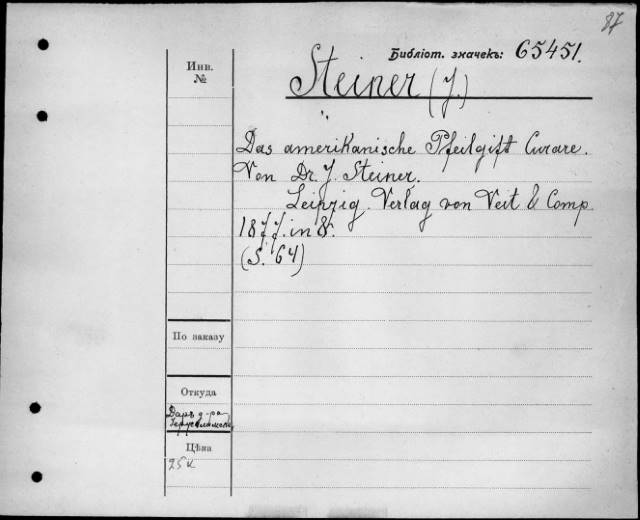 87
Библіот. значекъ: 65451.
Инв.
№
Steiner (J.)
Das amerikanische Pfeilgift Curare.
Von Dr. J. Steiner.
Leipzig. Verlag von Veit & Comp.
1877. in 8.
(S. 64)
По заказу
Откуда
Даръ д-ра
Цѣна
25 к